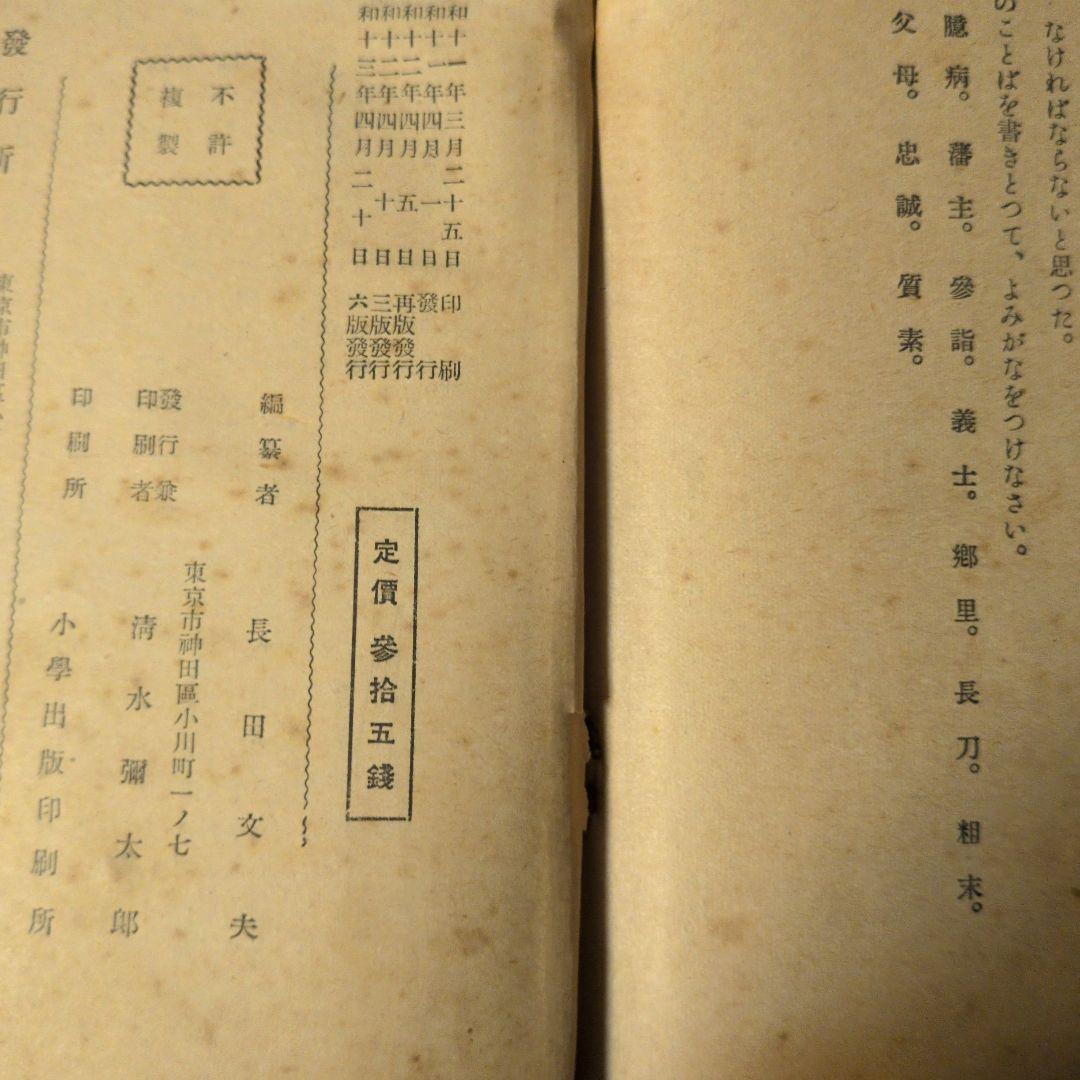 なければならないと思つた。
のことばを書きとつて、よみがなをつけなさい。
臆病。藩主。參詣。義士。鄕里。長刀。粗末。
父母。忠誠。質素。
和十一年三月二十五日印刷
和十一年四月一日發行
和十二年四月五日再版發行
和十二年四月十日三版發行
和十三年四月二十日六版發行
定價參拾五錢
不許
複製
編纂者 長田文夫
東京市神田區小川町一ノ七
發行兼
印刷者 淸水彌太郞
印刷所 小學出版印刷所
發行所
東京市神田區